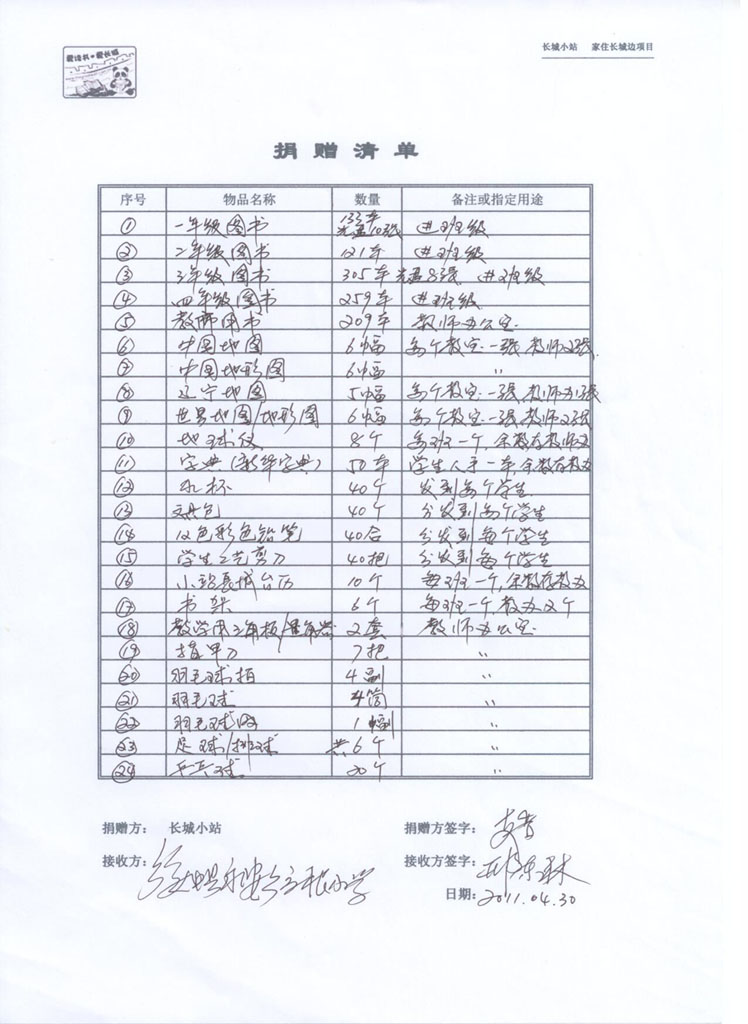 爱读书·爱长城
长城小站 家住长城边项目
捐赠清单
序号 物品名称 数量 备注或指定用途
① 一年级图书 133本 光盘10张 进班级
② 二年级图书 121本 进班级
③ 3年级图书 305本 光盘8张 进班级
④ 四年级图书 259本 进班级
⑤ 教师用书 209本 教师办公室
⑥ 中国地图 6幅 每个教室一张,教师2张
⑦ 中国地形图 6幅 〃
⑧ 辽宁地图 5幅 每个教室一张,教师办1张
⑨ 世界地图/地形图 6幅 每个教室一张,教师2张
⑩ 地球仪 8个 每班一个,余数存教师办
⑪ 字典(新华字典) 50本 学生人手一本,余数存教办
⑫ 水杯 40个 分发到每个学生
⑬ 文具包 40个 分发到每个学生
⑭ 12色彩色铅笔 40合 分发到每个学生
⑮ 学生工艺剪刀 40把 分发到每个学生
⑯ 小站长城台历 10个 每班一个,余数存教办
⑰ 书架 6个 每班一个,教办2个
⑱ 教学用三角板/量角器 2套 教师办公室
⑲ 指甲刀 7把 〃
⑳ 羽毛球拍 4副 〃
㉑ 羽毛球 4筒 〃
㉒ 羽毛球网 1幅 〃
㉓ 足球/排球 共6个 〃
㉔ 乒乓球 20个 〃
捐赠方: 长城小站 捐赠方签字:
接收方: 小学 接收方签字:
日期: 2011.04.30